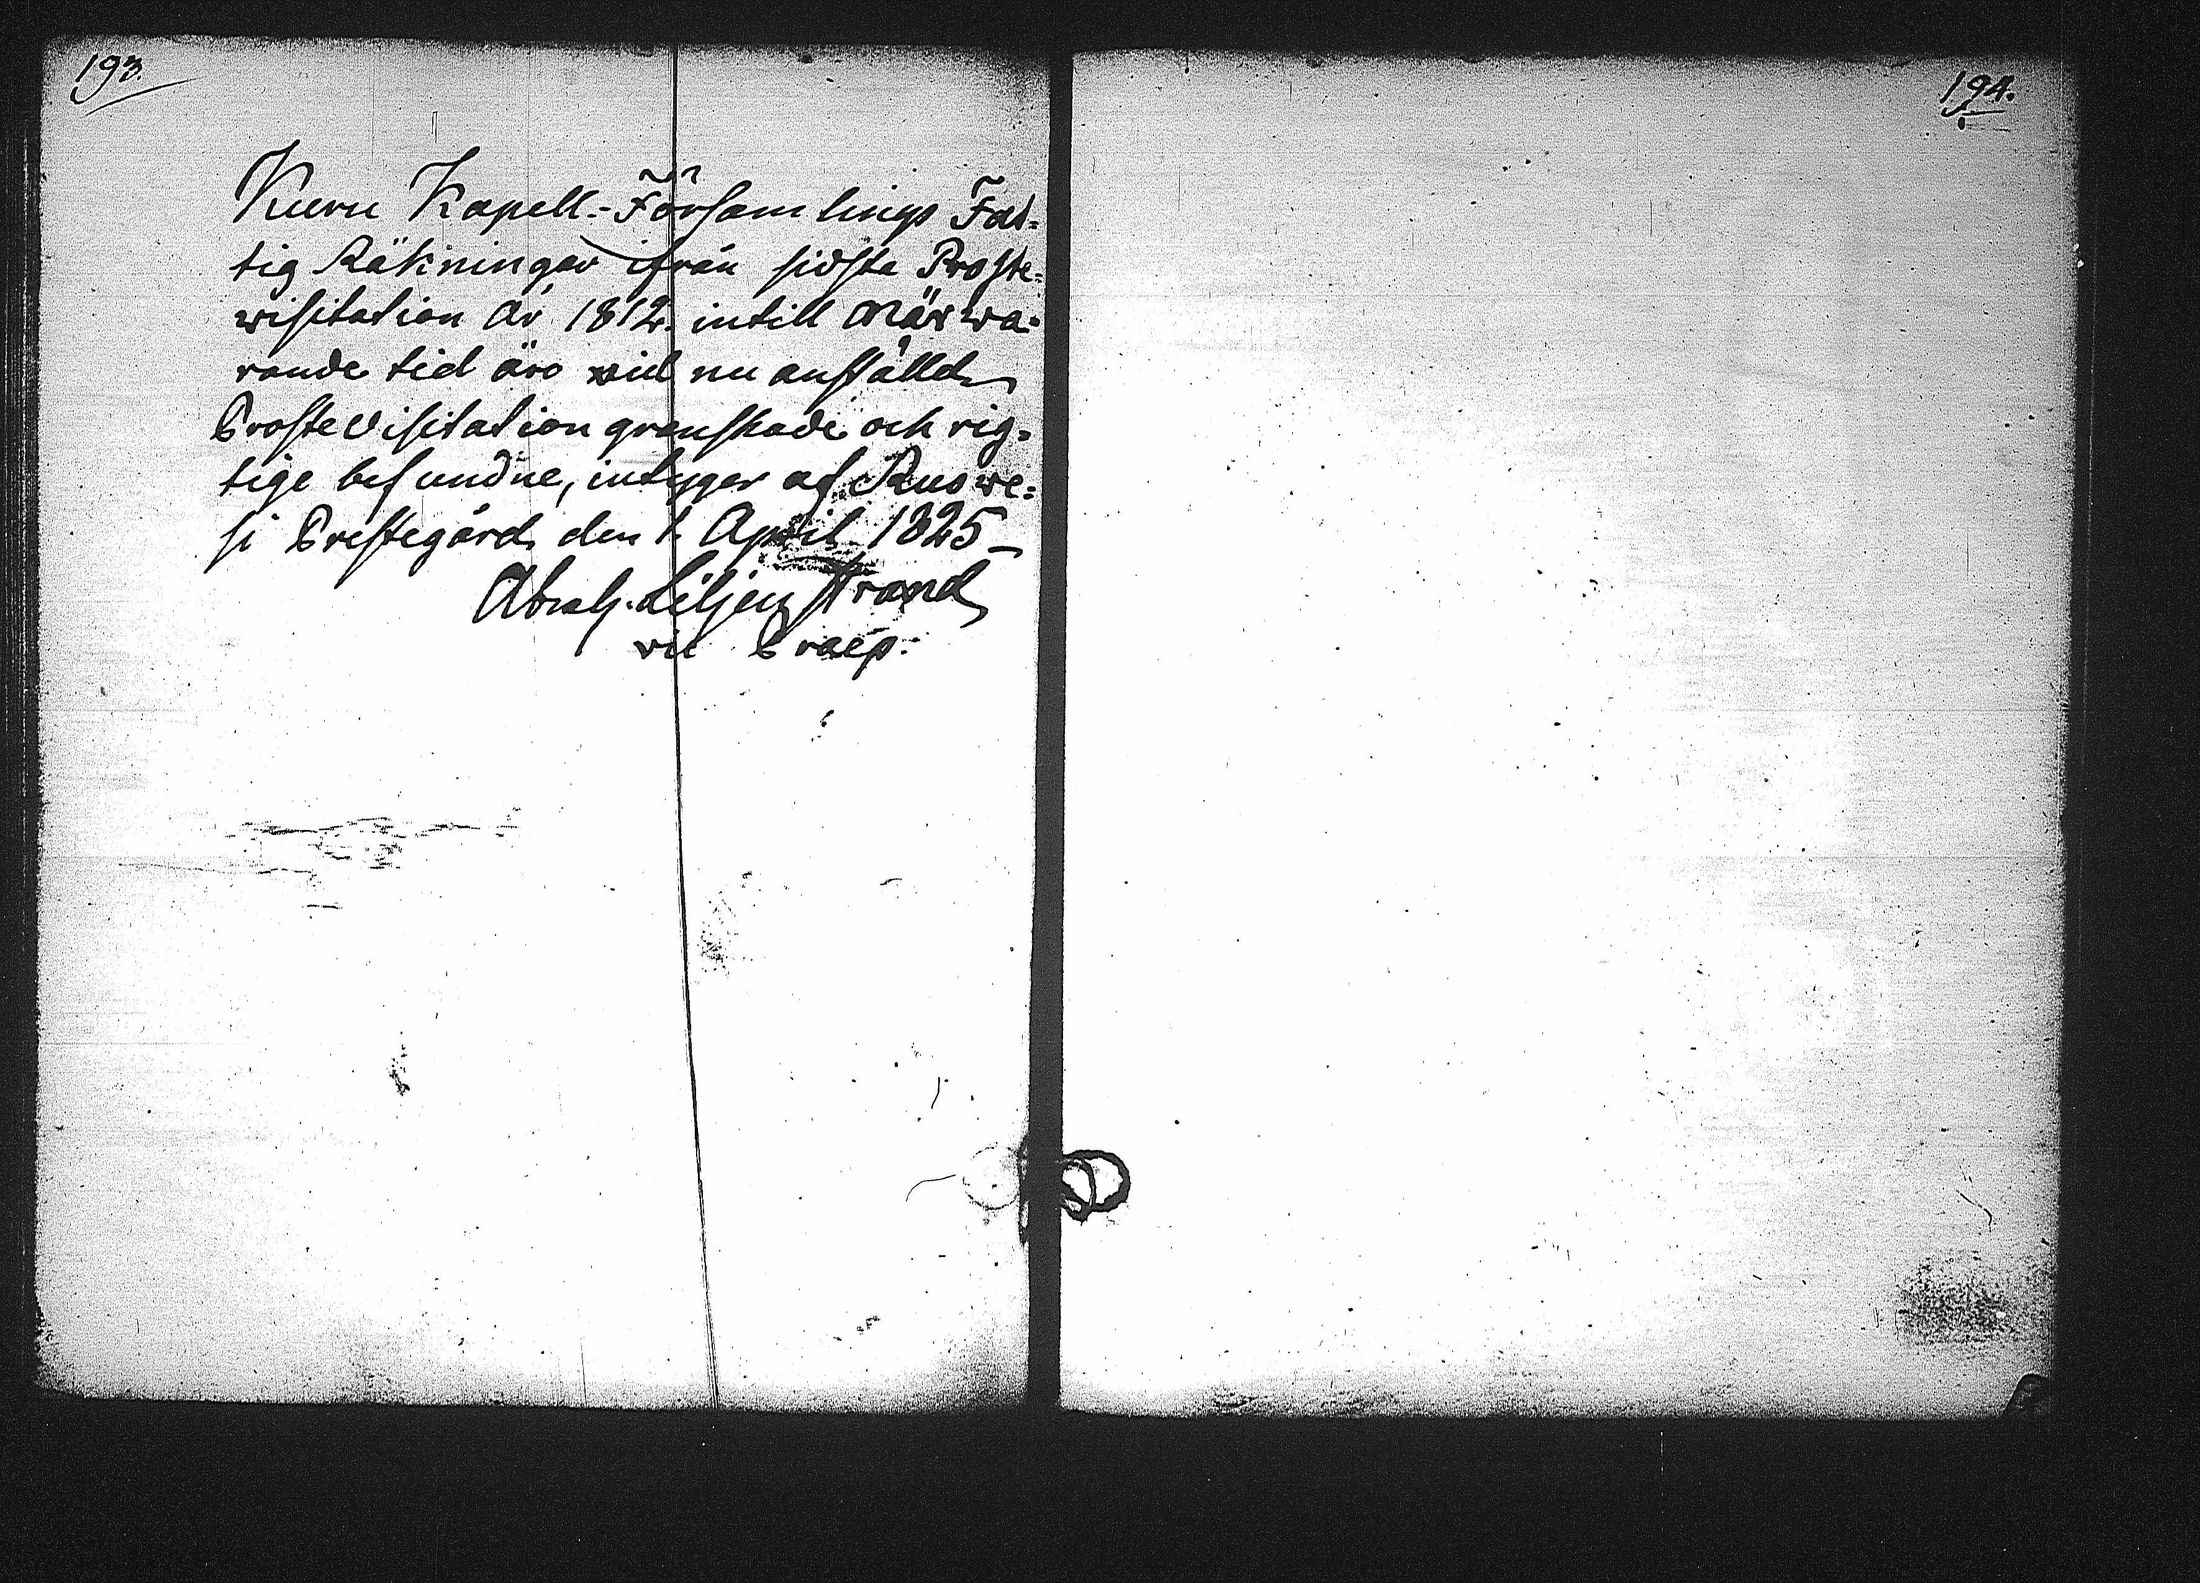 193.
Kuru Kapell-Församlings Fat=
tig Räkningar ifrån sidsta Proste=
wisitation År 1812. intill närwa=
rande tid äro wid nu anställd
Prostevisitation granskade och rig=
tige befundne, intygar af Ruowe=
si Prestegård den 1. April 1825
Abrah. Liljenstrand
vic Praep.
194.